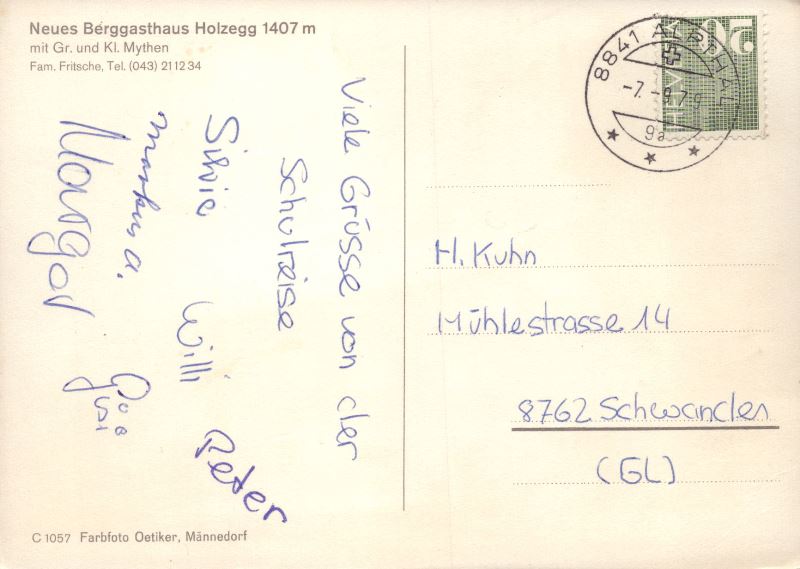 Neues Berggasthaus Holzegg 1407 m
mit Gr. und Kl. Mythen
Fam. Fritsche, Tel. (043) 21 12 34
Viele Grüsse von der
Schulreise
Silvia Willi Peter
Markus a.
Margot
C 1057 Farbfoto Oetiker, Männedorf
8841 ALPTHAL
-7.-9.79
9a
HELVETIA
20
H. Kuhn
Mühlestrasse 14
8762 Schwanden
(GL)